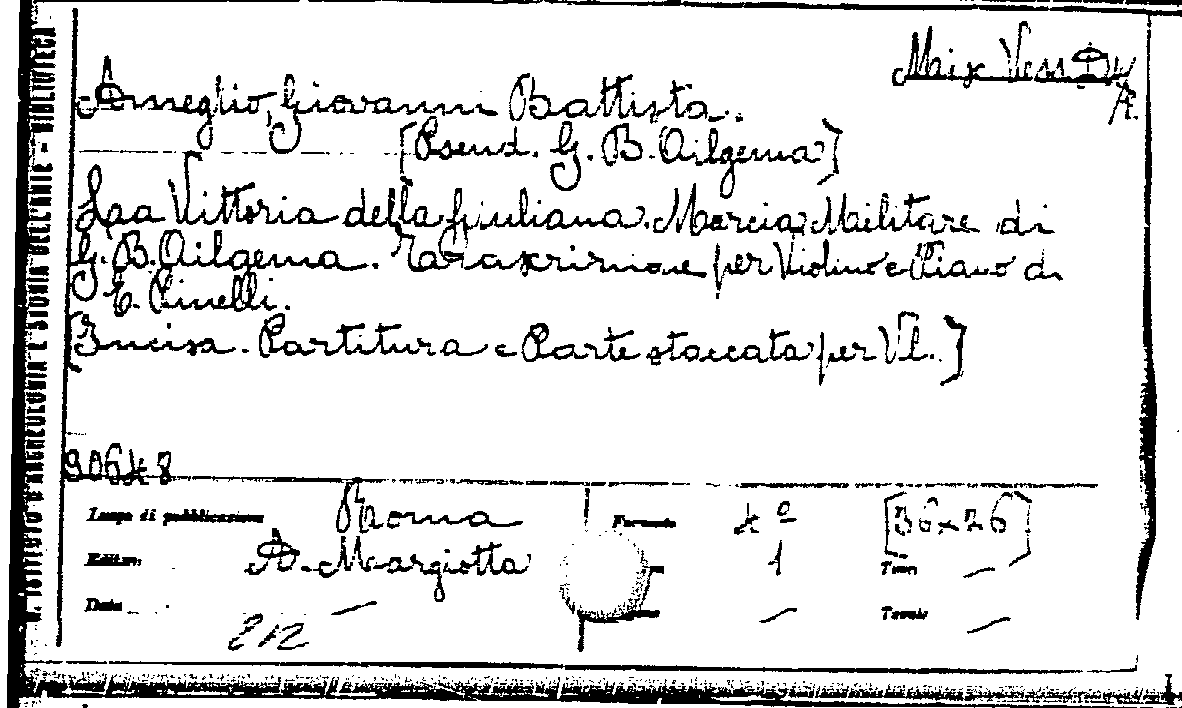 Mus. Vess. D
A
Ameglio, Giovanni Battista.
[Pseud. G. B. Ailgema]
Laa Vittoria della Giuliana. Marcia Militare di
G. B. Ailgema. Trascrizione per Violino e Piano di
E. Pinelli.
[Incisa. Partitura e Parte staccata per Vl.]
Luogo di pubblicazione Roma Formato 4º [36x26]
Editore A. Margiotta 1 Tomi —
Data — — Tavole —
212
R. ISTITUTO D'ARCHEOLOGIA E STORIA DELL'ARTE - BIBLIOTECA